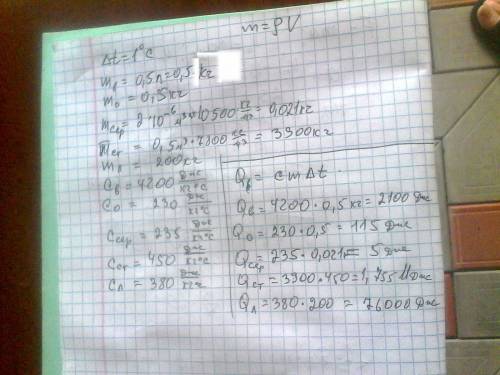 m = ρV
Δt = 1°C
m_в = 0,5л = 0,5 кг
m_о = 0,5 кг
m_сер = 2·10⁻⁶ м³·10500 кг/м³ = 0,021 кг
m_ст = 0,5 м³·7800 кг/м³ = 3900 кг
m_л = 200 кг
C_в = 4200 Дж/кг°C
C_о = 230 Дж/кг°C
C_сер = 235 Дж/кг°C
C_ст = 450 Дж/кг°C
C_л = 380 Дж/кг°C
Q_в = cmΔt
Q_в = 4200·0,5 кг = 2100 Дж
Q_о = 230·0,5 = 115 Дж
Q_сер = 235·0,021 = 5 Дж
Q_ст = 3900·450 = 1,755 МДж
Q_л = 380·200 = 76000 Дж